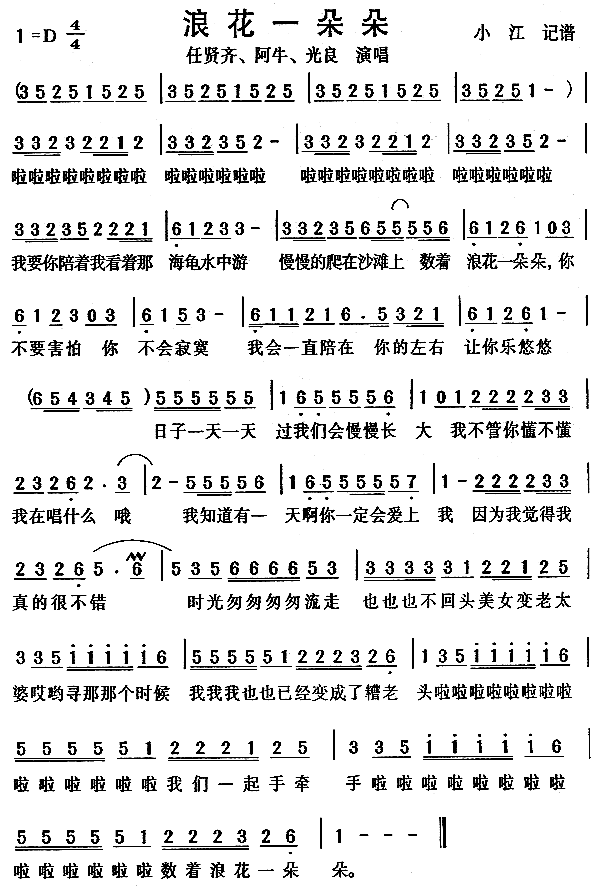 1=D 4/4 浪花一朵朵 小江 记谱
任贤齐、阿牛、光良 演唱
(35251525 | 35251525 | 35251525 | 35251-) |
33232212 | 332352- | 33232212 | 332352- |
啦啦啦啦啦啦啦啦 啦啦啦啦啦啦 啦啦啦啦啦啦啦啦 啦啦啦啦啦啦
332352221 | 61233- | 3323565556 | 6126103 |
我要你陪着我看着那 海龟水中游 慢慢的爬在沙滩上 数着 浪花一朵朵,你
612303 | 6153- | 611216.5321 | 61261- |
不要害怕 你 不会寂寞 我会一直陪在 你的左右 让你乐悠悠
(654345) 555555 | 16555556 | 1012222233 |
日子一天一天 过我们会慢慢长 大 我不管你懂不懂
23262.3 | 2-555556 | 165555557 | 1-222233 |
我在唱什么 哦 我知道有一 天啊你一定会爱上 我 因为我觉得我
23265.6 | 5356666653 | 33333122125 |
真的很不错 时光匆匆匆匆流走 也也也不回头美女变老太
335111116 | 555551222326 | 135111116 |
婆哎哟寻那那个时候 我我我也也已经变成了糟老 头啦啦啦啦啦啦啦啦
555551222125 | 335111116 |
啦啦啦啦啦啦我们一起手牵 手啦啦啦啦啦啦啦啦
555551222326 | 1--- ‖
啦啦啦啦啦啦数着浪花一朵 朵。